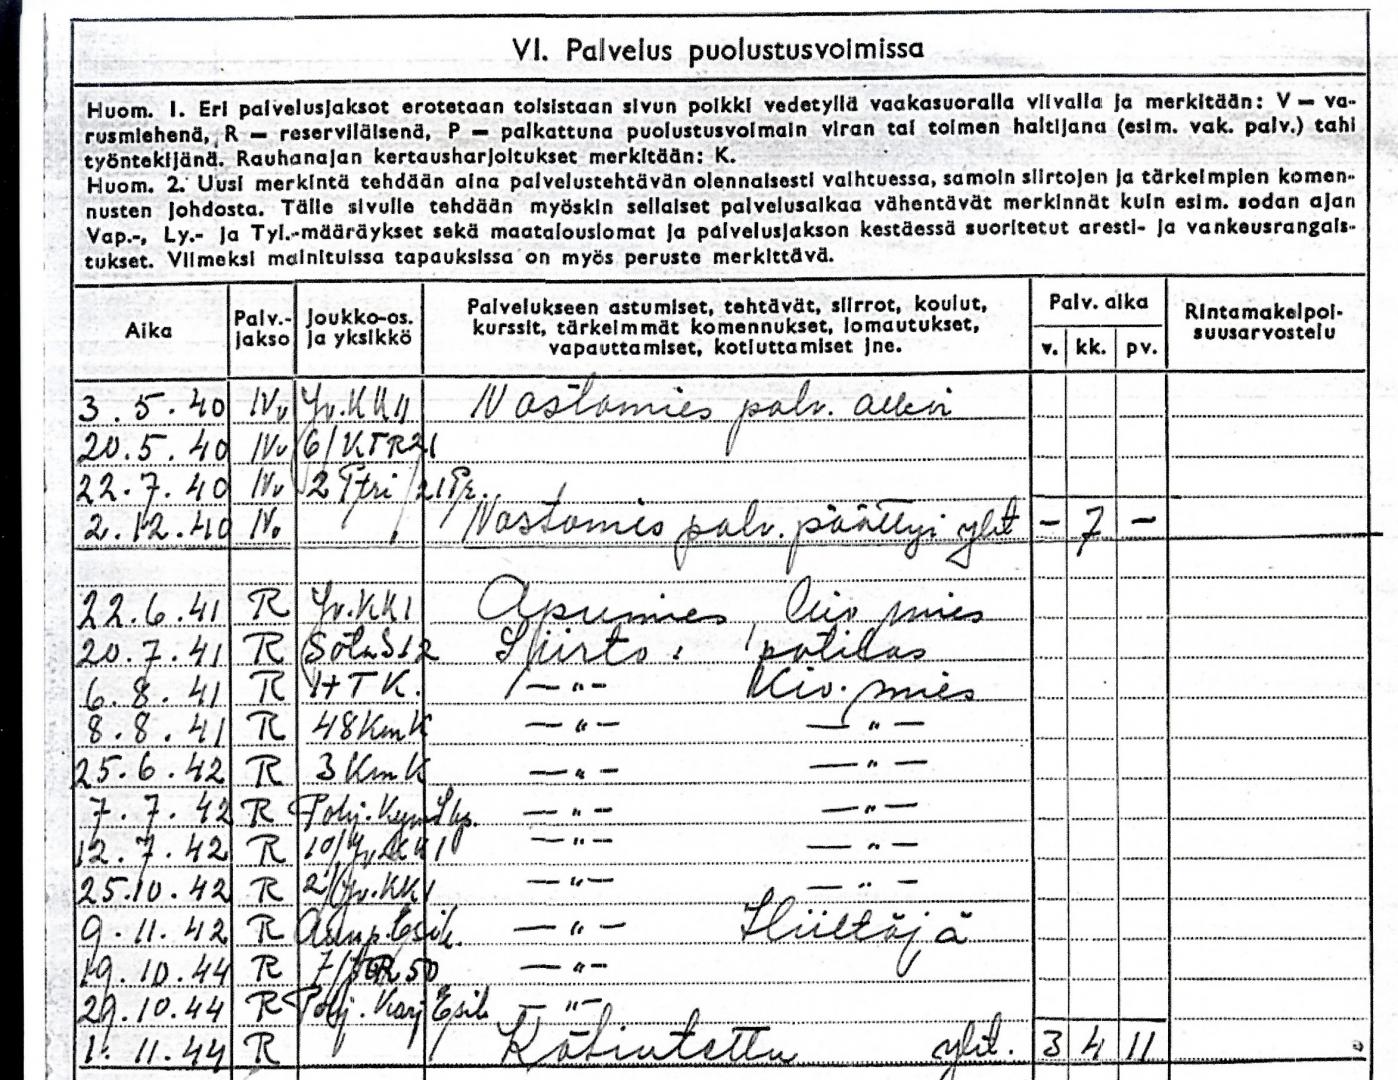 VI. Palvelus puolustusvoimissa
Huom. 1. Eri palvelusjaksot erotetaan toisistaan sivun poikki vedetyllä vaakasuoralla viivalla ja merkitään: V — va-
rusmiehenä, R — reserviläisenä, P — palkattuna puolustusvoimain viran tai toimen haltijana (esim. vak. palv.) tahi
työntekijänä. Rauhanajan kertausharjoitukset merkitään: K.
Huom. 2. Uusi merkintä tehdään aina palvelustehtävän olennaisesti vaihtuessa, samoin siirtojen ja tärkeimpien komen-
nusten johdosta. Tälle sivulle tehdään myöskin sellaiset palvelusaikaa vähentävät merkinnät kuin esim. sodan ajan
Vap.-, Ly.- ja Tyl.-määräykset sekä maatalouslomat ja palvelusjakson kestäessä suoritetut aresti- ja vankeusrangais-
tukset. Viimeksi mainituissa tapauksissa on myös peruste merkittävä.
Aika
Palv.-
jakso
Joukko-os.
ja yksikkö
Palvelukseen astumiset, tehtävät, siirrot, koulut,
kurssit, tärkeimmät komennukset, lomautukset,
vapauttamiset, kotiuttamiset jne.
Palv. aika
v. kk. pv.
Rintamakelpoi-
suusarvostelu
3.5.40 Nostomies palv. alkoi
20.5.40 6/KTR21
22.7.40 2 Ptri/21Pr.
2.12.40 Nostomies palv. päättyi yht - 7 -
22.6.41 R Jv.KK1 Apumies,
20.7.41 R SotaS12 Siirto, potilas
6.8.41 R — " — Kiv. mies
8.8.41 R 48KmK — " — — " —
25.6.42 R 3KmK — " — — " —
7.7.42 R — " — — " —
12.7.42 R — " — — " —
25.10.42 R 2/Jv.KK1 — " — — " —
9.11.42 R — " —
19.10.44 R — " —
29.10.44 R Pohj. Karj Esik — " —
1.11.44 R Kotiutettu yht. 3 4 11